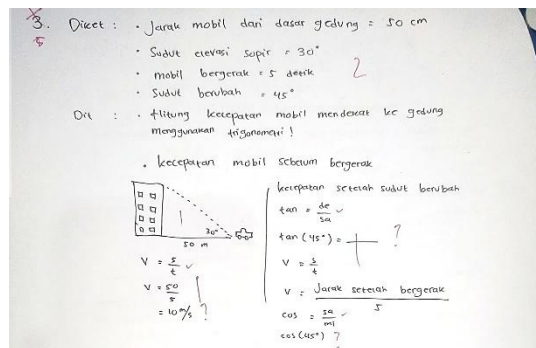 3. Diket : • Jarak mobil dari dasar gedung = 50 cm
5
• Sudut elevasi supir = 30°
• mobil bergerak = 5 detik
2
• Sudut berubah = 45°
Dit : • Hitung kecepatan mobil mendekat ke gedung
menggunakan trigonometri !
• kecepatan mobil sebelum bergerak
30°
50 m
V = s/t
V = 50/5
= 10 m/s ?
kecepatan setelah sudut berubah
tan = de/sa
tan (45°) = ?
V = s/t
V = Jarak setelah bergerak/5
cos = sa/mi
cos (45°) ?